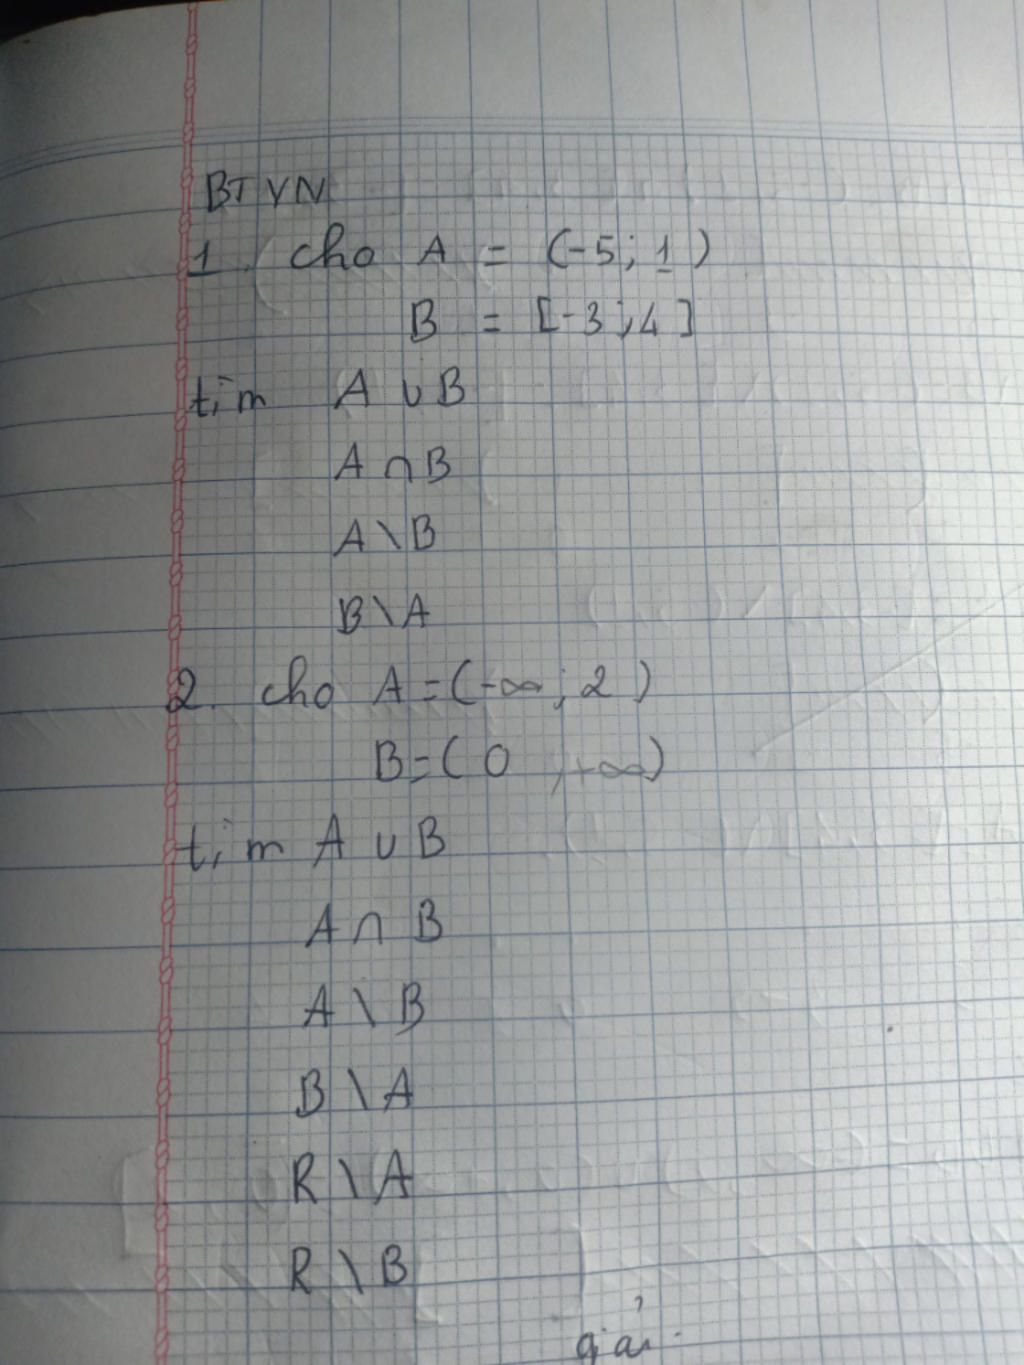 BTVN
1. cho A = (-5; 1)
B = [-3; 4]
tìm A ∪ B
A ∩ B
A \ B
B \ A
2. cho A = (-∞; 2)
B = (0; +∞)
tìm A ∪ B
A ∩ B
A \ B
B \ A
R \ A
R \ B
giải